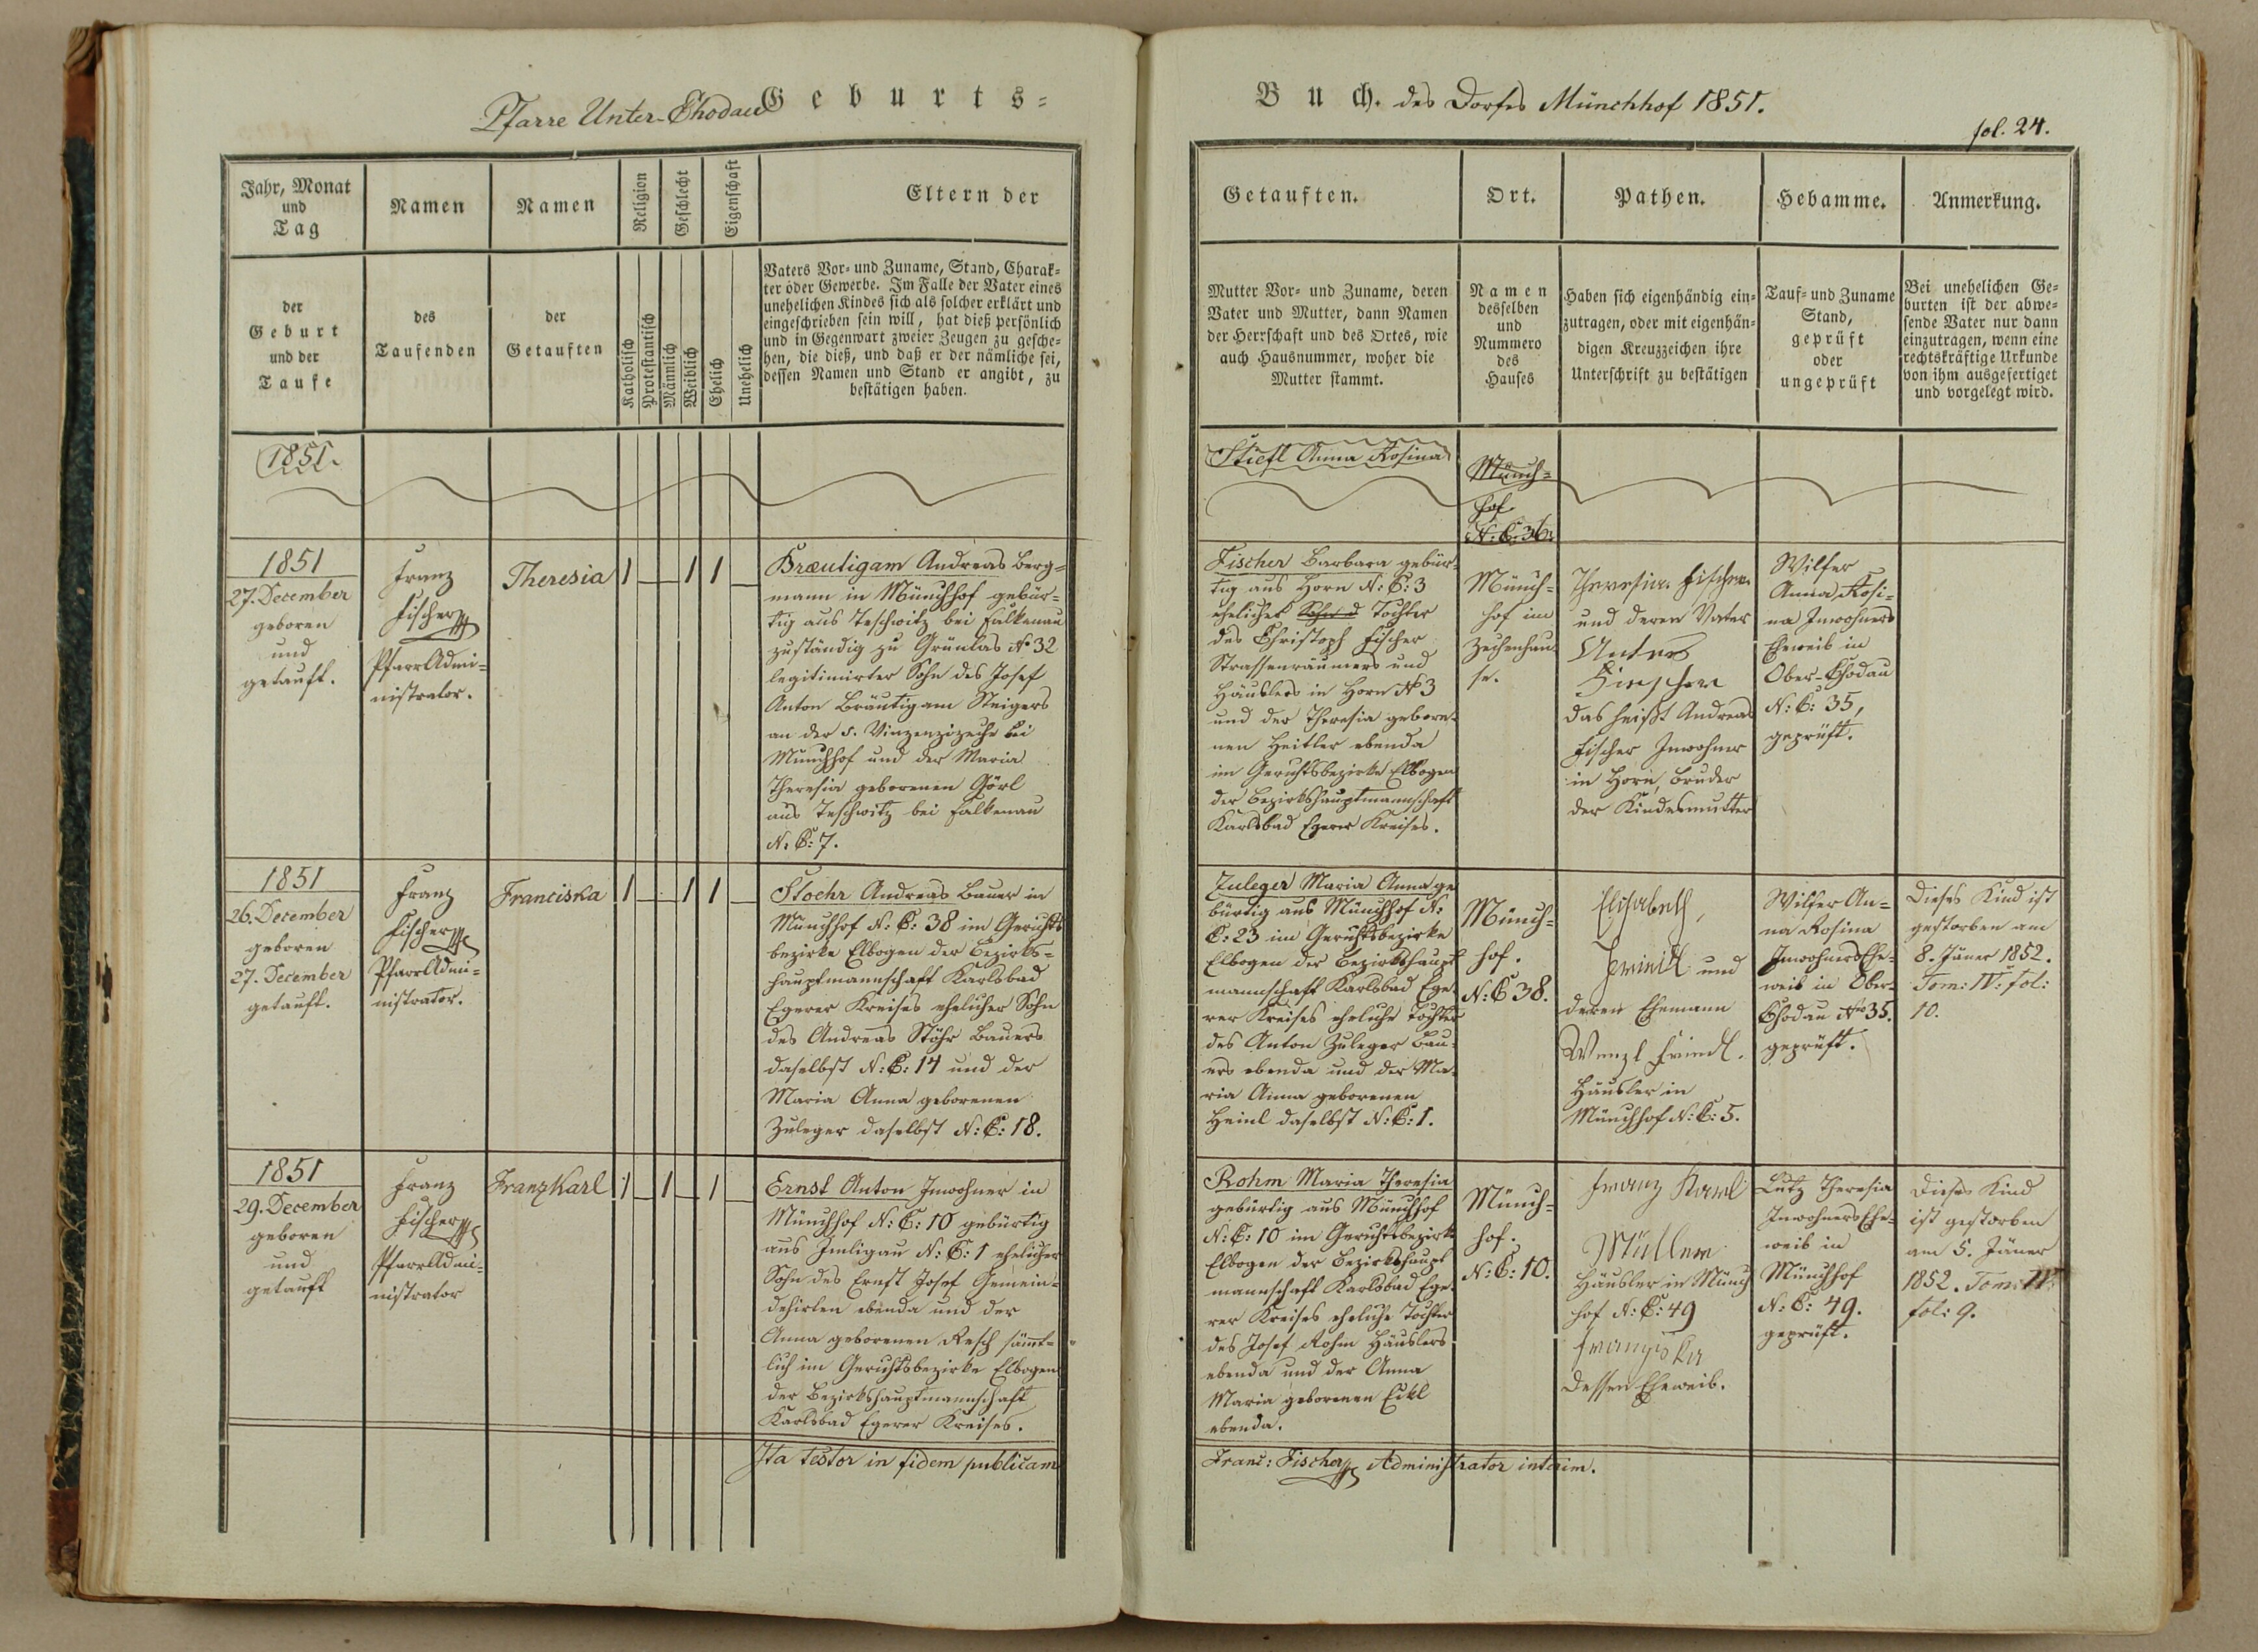 Pfarre Unter-Chodau Geburts-
Jahr, Monat
und
Tag
Namen
Namen
Religion
Geschlecht
Eigenschaft
Eltern der
der
Geburt
und der
Taufe
des
Taufenden
der
Getauften
Katholisch
Protestantisch
Männlich
Weiblich
Ehelich
Unehelich
Vaters Vor- und Zuname, Stand, Charak-
ter oder Gewerbe. Im Falle der Vater eines
unehelichen Kindes sich als solcher erklärt und
eingeschrieben sein will, hat dieß persönlich
und in Gegenwart zweier Zeugen zu gesche-
hen, die dieß, und daß er der nämliche sei,
dessen Namen und Stand er angibt, zu
bestätigen haben.
1851.
1851
27. December
geboren
und
getauft.
Franz
Fischer
Pfarr Admi-
nistrator.
Theresia
1 1 1
Bræutigam Andreas Berg-
mann in Münchhof gebür-
tig aus Teschwitz bei Falkenau
zuständig zu Grünlas No 32
legitimirter Sohn des Josef
Anton Bräutigam Steigers
an der s. Vinzenzizeche bei
Münchhof und der Maria
Theresia geborenen Görl
aus Teschwitz bei Falkenau
N: C: 7.
1851
26. December
geboren
27. December
getauft.
Franz
Fischer
Pfarr Admi-
nistrator.
Franciska
1 1 1
Stoehr Andreas Bauer in
Münchhof N: C: 38 im Gerichts
bezirke Elbogen der Bezirks-
hauptmannschaft Karlsbad
Egerer Kreises ehelicher Sohn
des Andreas Stöhr Bauers
daselbst N: C: 14 und der
Maria Anna geborenen
Zuleger daselbst N: C: 18.
1851
29. December
geboren
und
getauft
Franz
Fischer
Pfarr Admi-
nistrator
Franz Karl
1 1 1
Ernst Anton Inwohner in
Münchhof N: C: 10 gebürtig
aus Imligau N: C: 1 ehelicher
Sohn des Ernst Josef Gemein-
dehirten ebenda und der
Anna geborenen Resch sämt-
lich im Gerichtsbezirke Elbogen
der Bezirkshauptmannschaft
Karlsbad Egerer Kreises.
Ita testor in fidem publicam
Buch. des Dorfes Münchhof 1851.
fol. 24.
Getauften.
Ort.
Pathen.
Hebamme.
Anmerkung.
Mutter Vor- und Zuname, deren
Vater und Mutter, dann Namen
der Herrschaft und des Ortes, wie
auch Hausnummer, woher die
Mutter stammt.
Namen
desselben
und
Nummero
des
Hauses
Haben sich eigenhändig ein-
zutragen, oder mit eigenhän-
digen Kreuzzeichen ihre
Unterschrift zu bestätigen
Tauf- und Zuname
Stand,
geprüft
oder
ungeprüft
Bei unehelichen Ge-
burten ist der abwe-
sende Vater nur dann
einzutragen, wenn eine
rechtskräftige Urkunde
von ihm ausgefertiget
und vorgelegt wird.
Stiefl Anna Rosina
Münch-
hof
N: C: 36.
Fischer Barbara gebür-
tig aus Horn N: C: 3
eheliche Tochter
des Christoph Fischer
Strassenräumers und
Häuslers in Horn No 3
und der Theresia gebore-
nen Heitler ebenda
im Gerichtsbezirke Elbogen
der Bezirkshauptmannschaft
Karlsbad Egerer Kreises.
Münch-
hof im
Zechenhau
se.
Theresia Fischer
und deren Vater
Fischer
das heißt Andreas
Fischer Inwohner
in Horn, Bruder
der Kindesmutter
Wilfer
Anna Rosi-
na Inwohners
Eheweib in
Ober-Chodau
N: C: 35,
geprüft.
Zuleger Maria Anna ge
bürtig aus Münchhof N:
C: 23 im Gerichtsbezirke
Elbogen der Bezirkshaupt
mannschaft Karlsbad Ege-
rer Kreises eheliche Tochter
des Anton Zuleger Bau-
ers ebenda und der Ma-
ria Anna geborenen
Heinl daselbst N: C: 1.
Münch-
hof.
N: C 38.
Elisabeth,
Friedl und
deren Ehemann
Wenzl Friedl.
Häusler in
Münchhof N: C: 5.
Wilfer An-
na Rosina
Inwohners Ehe-
weib in Ober-
Chodau No 35.
geprüft.
Dieses Kind ist
gestorben am
8. Jäner 1852.
Tom: IV: fol:
10.
Rohm Maria Theresia
gebürtig aus Münchhof
N: C: 10 im Gerichtsbezirk
Elbogen der Bezirkshaupt
mannschaft Karlsbad Ege-
rer Kreises eheliche Tochter
des Josef Rohm Häuslers
ebenda und der Anna
Maria geborenen Eckl
ebenda.
Münch-
hof.
N: C: 10.
Franz Karl
Müller
Häusler in Münch
hof N: C: 49
Franziska
dessen Eheweib.
Lutz Theresia
Inwohners Ehe-
weib in
Münchhof
N: C: 49.
geprüft.
Dieses Kind
ist gestorben
am 5. Jäner
1852. Tom: IV:
fol: 9.
Franc: Fischer Administrator interim.